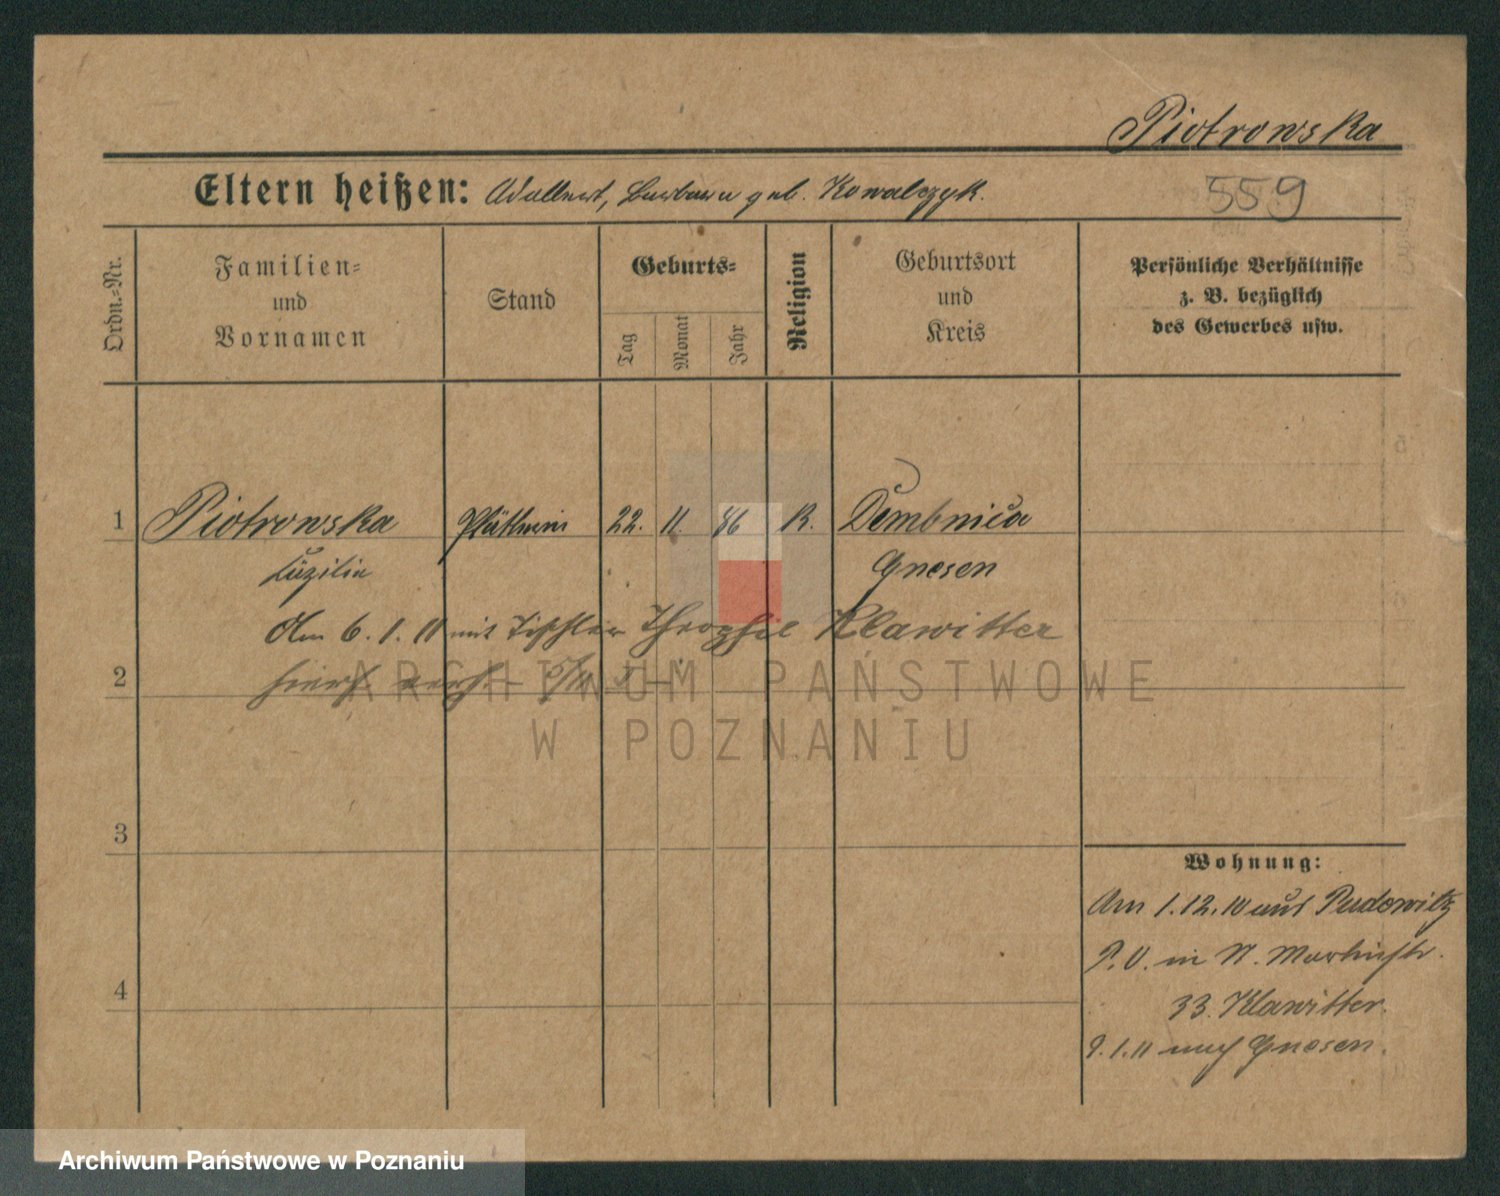 Piotrowska
Eltern heißen: Adalbert, Barbara geb. Kowalczyk.
559
Ordn.=Nr.
Familien=
und
Vornamen
Stand
Geburts=
Tag
Monat
Jahr
Religion
Geburtsort
und
Kreis
Persönliche Verhältnisse
z. B. bezüglich
des Gewerbes usw.
1 Piotrowska Plätterin 22. 11. 86 K. Dembnica
Cäzilie Gnesen
Am 6. 1. 11 mit Tischler Theophil Klawitter
2 hiers. verh.
3
4
Wohnung:
Am 1.12.10 aus Pudewitz
P.O. in N. Martinstr.
33. Klawitter.
9.1.11 nach Gnesen.
ARCHIWUM PAŃSTWOWE
W POZNANIU
Archiwum Państwowe w Poznaniu